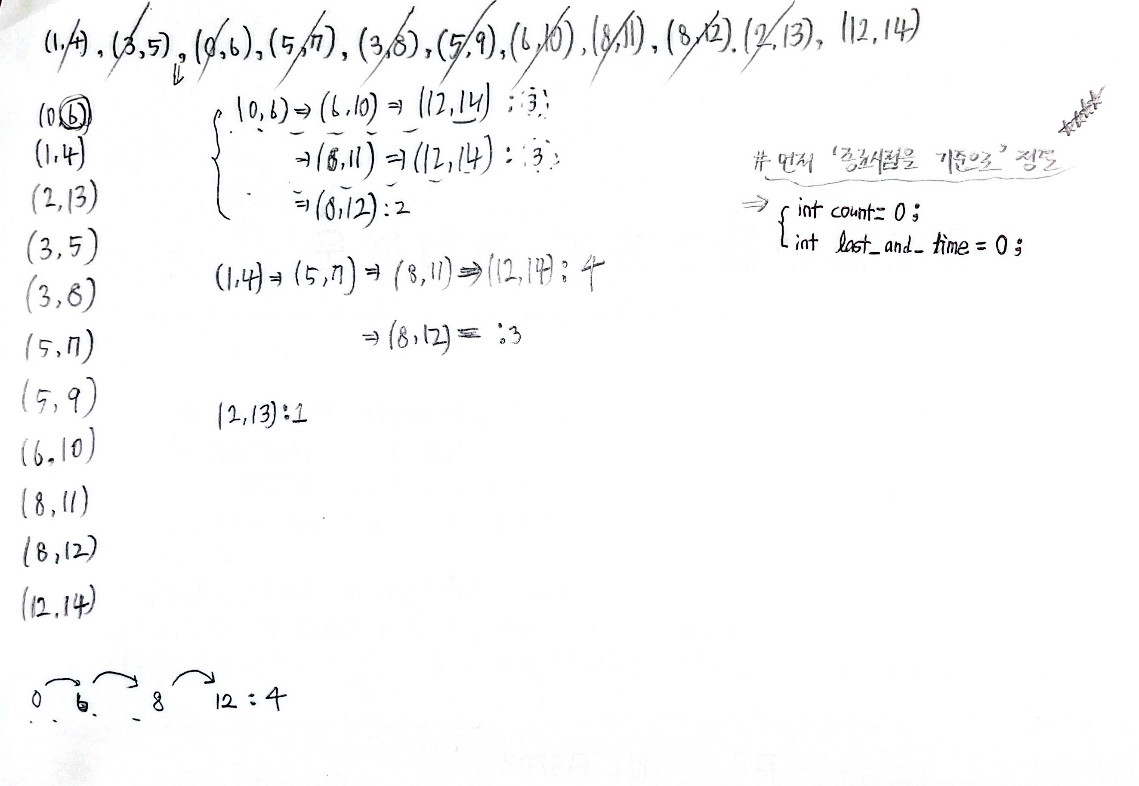 (1,4), (3,5), (0,6), (5,7), (3,8), (5,9), (6,10), (8,11), (8,12), (2,13), (12,14)
(0,6)
(1,4)
(2,13)
(3,5)
(3,8)
(5,7)
(5,9)
(6,10)
(8,11)
(8,12)
(12,14)
(0,6) ⇒ (6,10) ⇒ (12,14) : 3
⇒ (8,11) ⇒ (12,14) : 3
⇒ (8,12) : 2
(1,4) ⇒ (5,7) ⇒ (8,11) ⇒ (12,14) : 4
⇒ (8,12) = : 3
(2,13) : 1
# 먼저 '종료시점을 기준으로' 정렬
⇒ { int count = 0 ;
int last_and_time = 0 ;
0 6 8 12 : 4